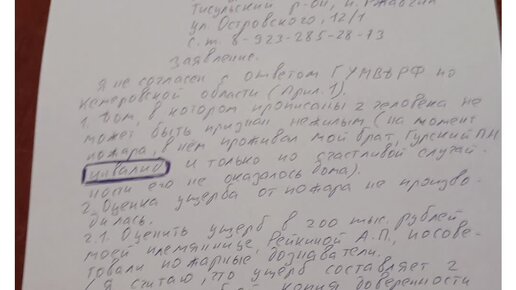 Тисульский р-он, п. Ржавчик
ул. Островского, 12/1
с.т. 8-923-285-28-73
Заявление.
Я не согласен с ответом ГУМВДРФ по
Кемеровской области (Прил.1).
1. Дом, в котором прописаны 2 человека не
может быть признан нежилым (на момент
пожара, в нём проживал мой брат, Гурский П.Н
инвалид и только по счастливой случай-
ности его не оказалось дома).
2. Оценка ущерба от пожара не произво-
дилась.
2.1. Оценить ущерб в 200 тыс. рублей
моей племяннице, Рейкиной А.П., посове-
товали пожарные дознаватели.
(Я считаю, что ущерб составляет 2
копия доверенности